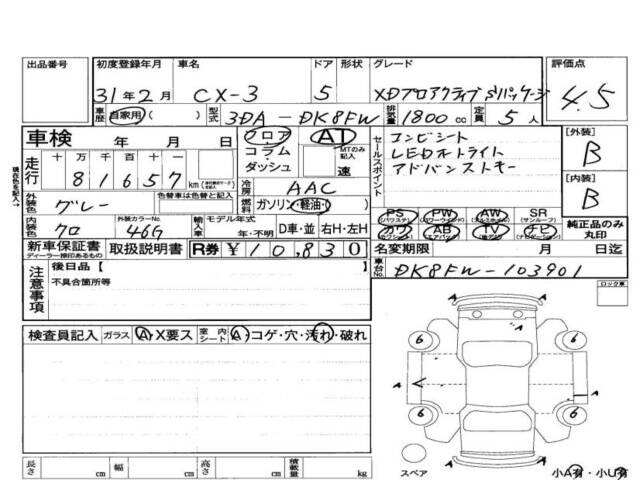 出品番号 初度登録年月 車名 ドア 形状 グレード 評価点
31年2月 CX-3 5 XDプロアクティブSパッケージ 4.5
車歴 自家用 ( ) 型式 3DA-DK8FW 排気量 1800cc 定員 5人
車検 年 月 日 フロア コラム ダッシュ AT MTのみ記入 速
走行 十 万 千 百 十 一
81657 km
セールスポイント コンビシート
LEDオートライト
アドバンストキー
[外装] B
[内装] B
冷房 AAC
外装色 グレー 色替車は色替と記入 燃料 ガソリン・軽油・( )
内装色 クロ 外装カラーNo. 46G 輸入車 モデル年式 年・不明 D車・並 右H・左H
PS (パワステ) PW (パワーウインド) AW (アルミホイル) SR (サンルーフ)
カワ AB (エアバッグ) TV ナビ (ナビゲーション)
純正品のみ丸印
新車保証書 ディーラー捺印あるもの 取扱説明書 R券 ¥10,830 名変期限 月 日迄
車台No. DK8FW-103901
注意事項 後日品【 】
不具合箇所等
ロック車
検査員記入 ガラス A・X要ス 室内シート A・コゲ・穴・汚れ・破れ
A
A
A
A
6
6
6
6
長さ cm 幅 cm 高さ cm 積載量 kg
スペア 小A有・小U有
現在色を記入→